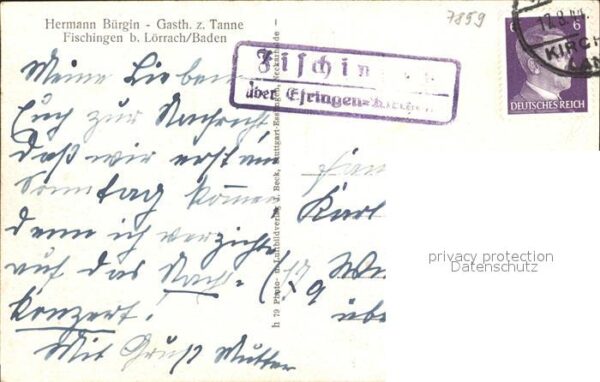 Hermann Bürgin - Gasth. z. Tanne
Fischingen b. Lörrach/Baden
7859
Fischingen
über Efringen-Kirchen
6 6
DEUTSCHES REICH
KIRCH
Meine Lieben
Euch zur Nachricht,
daß wir erst am
Sonntag kommen
denn ich verzichte
auf das Nach-
Konzert!
Mit Gruß Mutter
Karl
h 79 Photo- u. Luftbildverlag J. Beck, Stuttgart-Esslingen, Neckarhalde -
privacy protection
Datenschutz